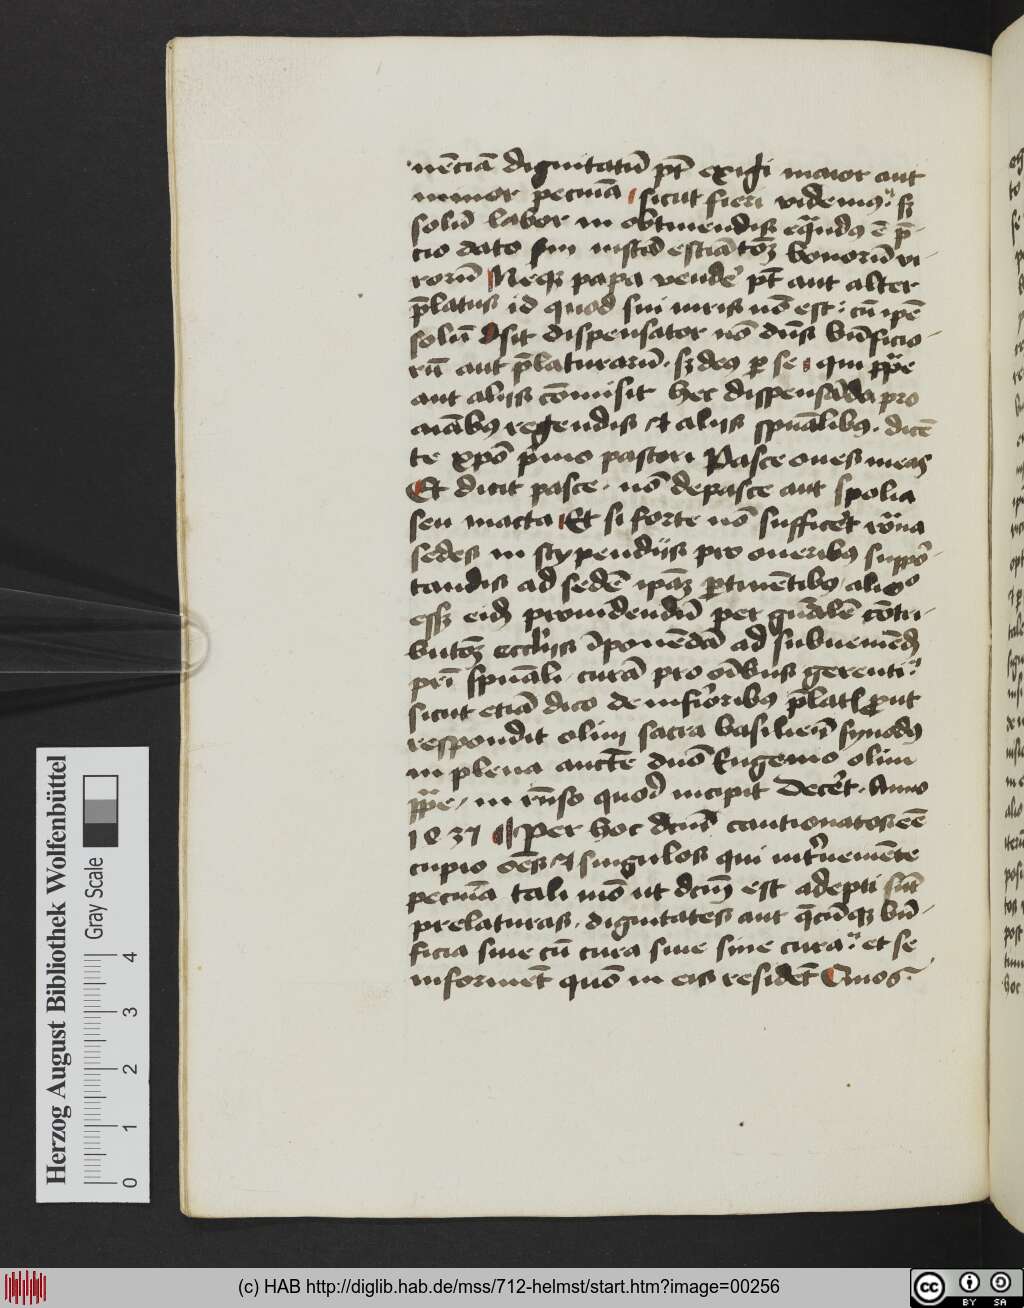 nēciā dignitatū pt̄ exigi maior aut
minor pecuīa sicut fieri videmꝰ. sꝫ
solū labor in obtinendis eq̄ndꝰ ē p̄-
cio dato bonorū vi-
rorū Neqꝫ papa vende᷑ pt̄ aut alter
p̄latus id quod sui iuris nō est. cū ipē
solū sit dispensator nō dn̄s bn̄ficio-
rū aut p̄laturarū. sꝫ deꝰ ꝑ se qui pp̄e
aut alijs cōmisit hec dispensāda pro
aīabꝰ regendis et alijs spūalibꝰ. dicē
te xpō p̄mo pastori Pasce oues meas
Et dicit pasce. nō depasce aut spolia
seu macta Et si forte nō sufficēt roāna
sedes in stypendijs pro oneribꝰ suppō-
tandis ad sedē ipāꝫ ꝑtinētibꝰ alioo
essꝫ eidē prouidendū per gn̄alē cōtri-
butōꝫ eccl̄ijs īponēdā ad subueniēdū
pr̄i spūali. curā pro oībus gerenti.
sicut etiā dico de inferioribꝰ p̄latis ꝓut
respondit olim sacra basilień synodꝰ
in plena auct̄e dn̄o Eugenio olim
pp̄e, in rn̄so quod incipit Decēt. Anno
1437 Per hoc dc̄m̄ cautionatos eē
cupio oēs et singulos qui int̄ueniēte
pecuīa tali mō ut dc̄m̄ est adepti sūt
prelaturas. dignitates aut q̄cūqꝫ bn̄-
ficia siue cū cura siue sine cura. et se
informēt quō in eis residēt Quos
Herzog August Bibliothek Wolfenbüttel
Gray Scale
0 1 2 3 4
(c) HAB http://diglib.hab.de/mss/712-helmst/start.htm?image=00256
cc BY SA